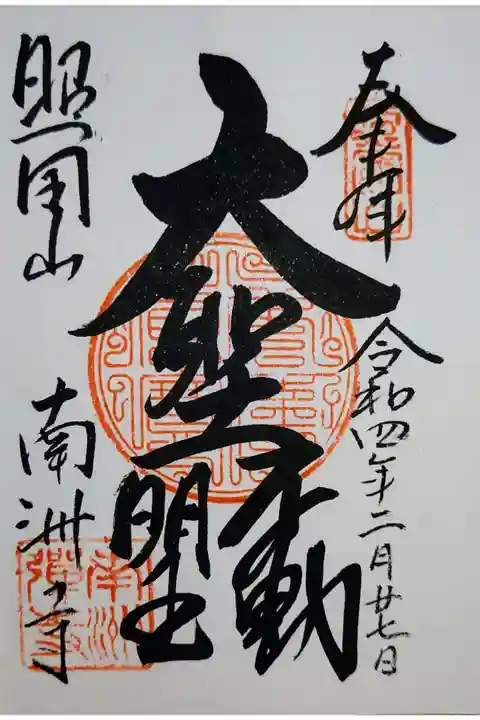 奉拝
令和四年二月廿七日
大聖不動明王
照用山
南洲寺
南洲禅寺